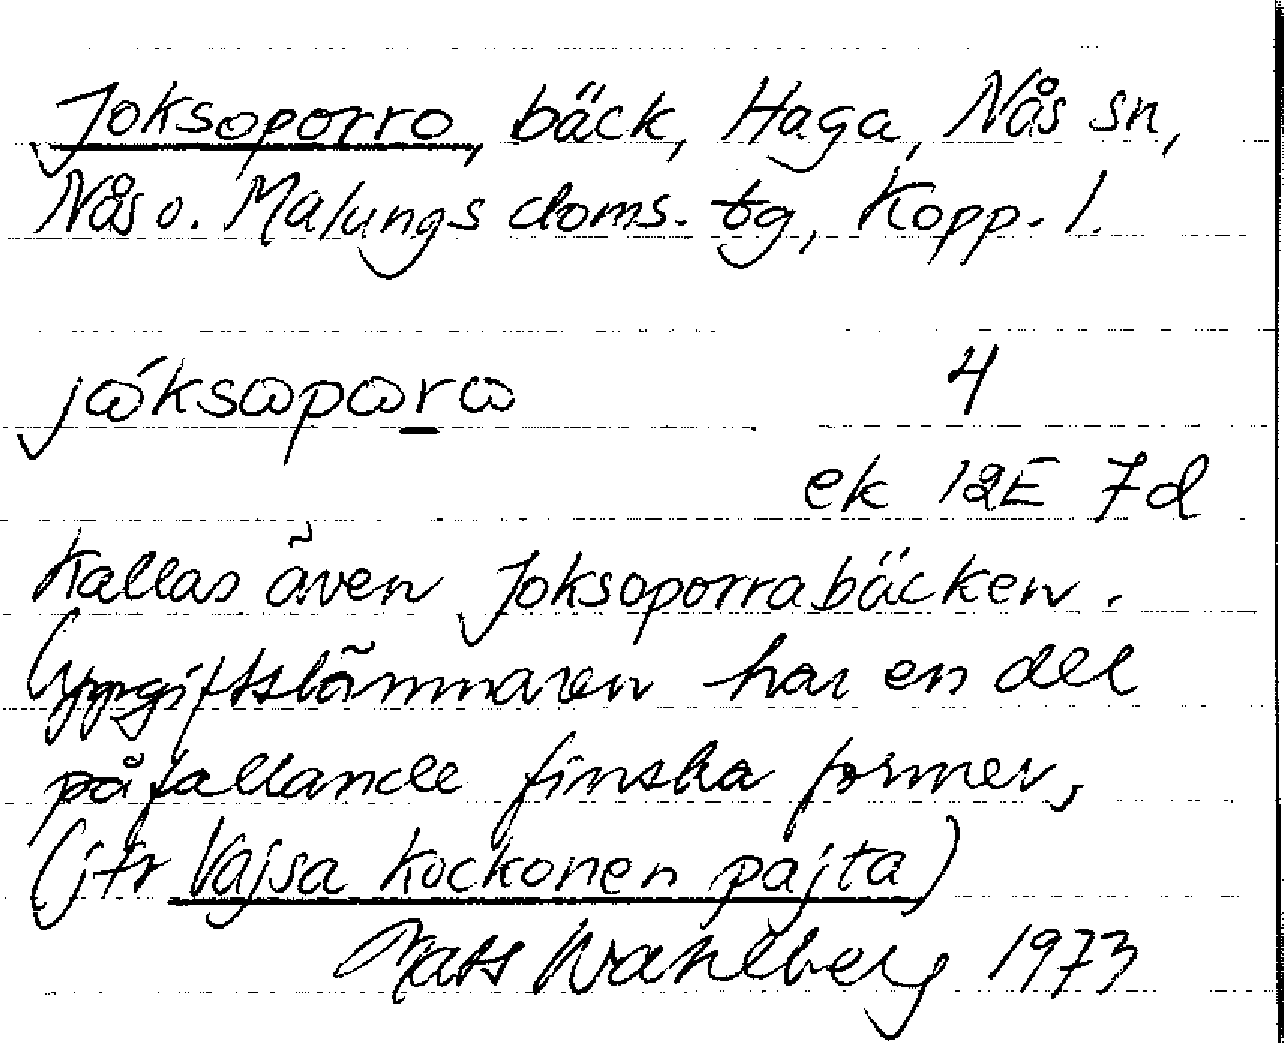 Joksoporro, bäck, Haga, Nås sn,
Nås o. Malungs doms. tg, Kopp. l.
jɷ́ksɷpɷrɷ 4
ek 12E 7d
Kallas även Joksoporrabäcken.
Uppgiftslämnaren har en del
påfallande finska former,
(jfr Vajsa Kockonen pajta)
Mats Wahlberg 1973